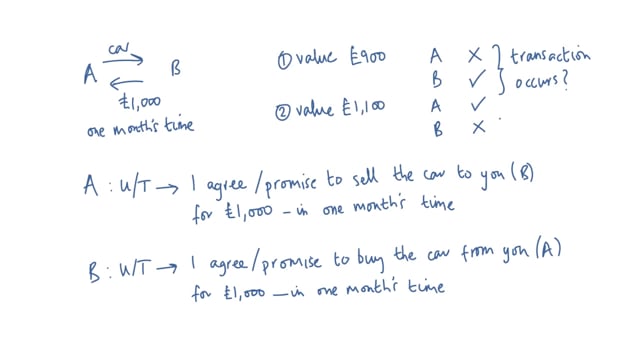 car
A B
£1,000
one month's time
① value £900 A ✗ } transaction
B ✓ } occurs?
② value £1,100 A ✓
B ✗
A : U/T → I agree/promise to sell the car to you (B)
for £1,000 – in one month's time
B : U/T → I agree/promise to buy the car from you (A)
for £1,000 – in one month's time